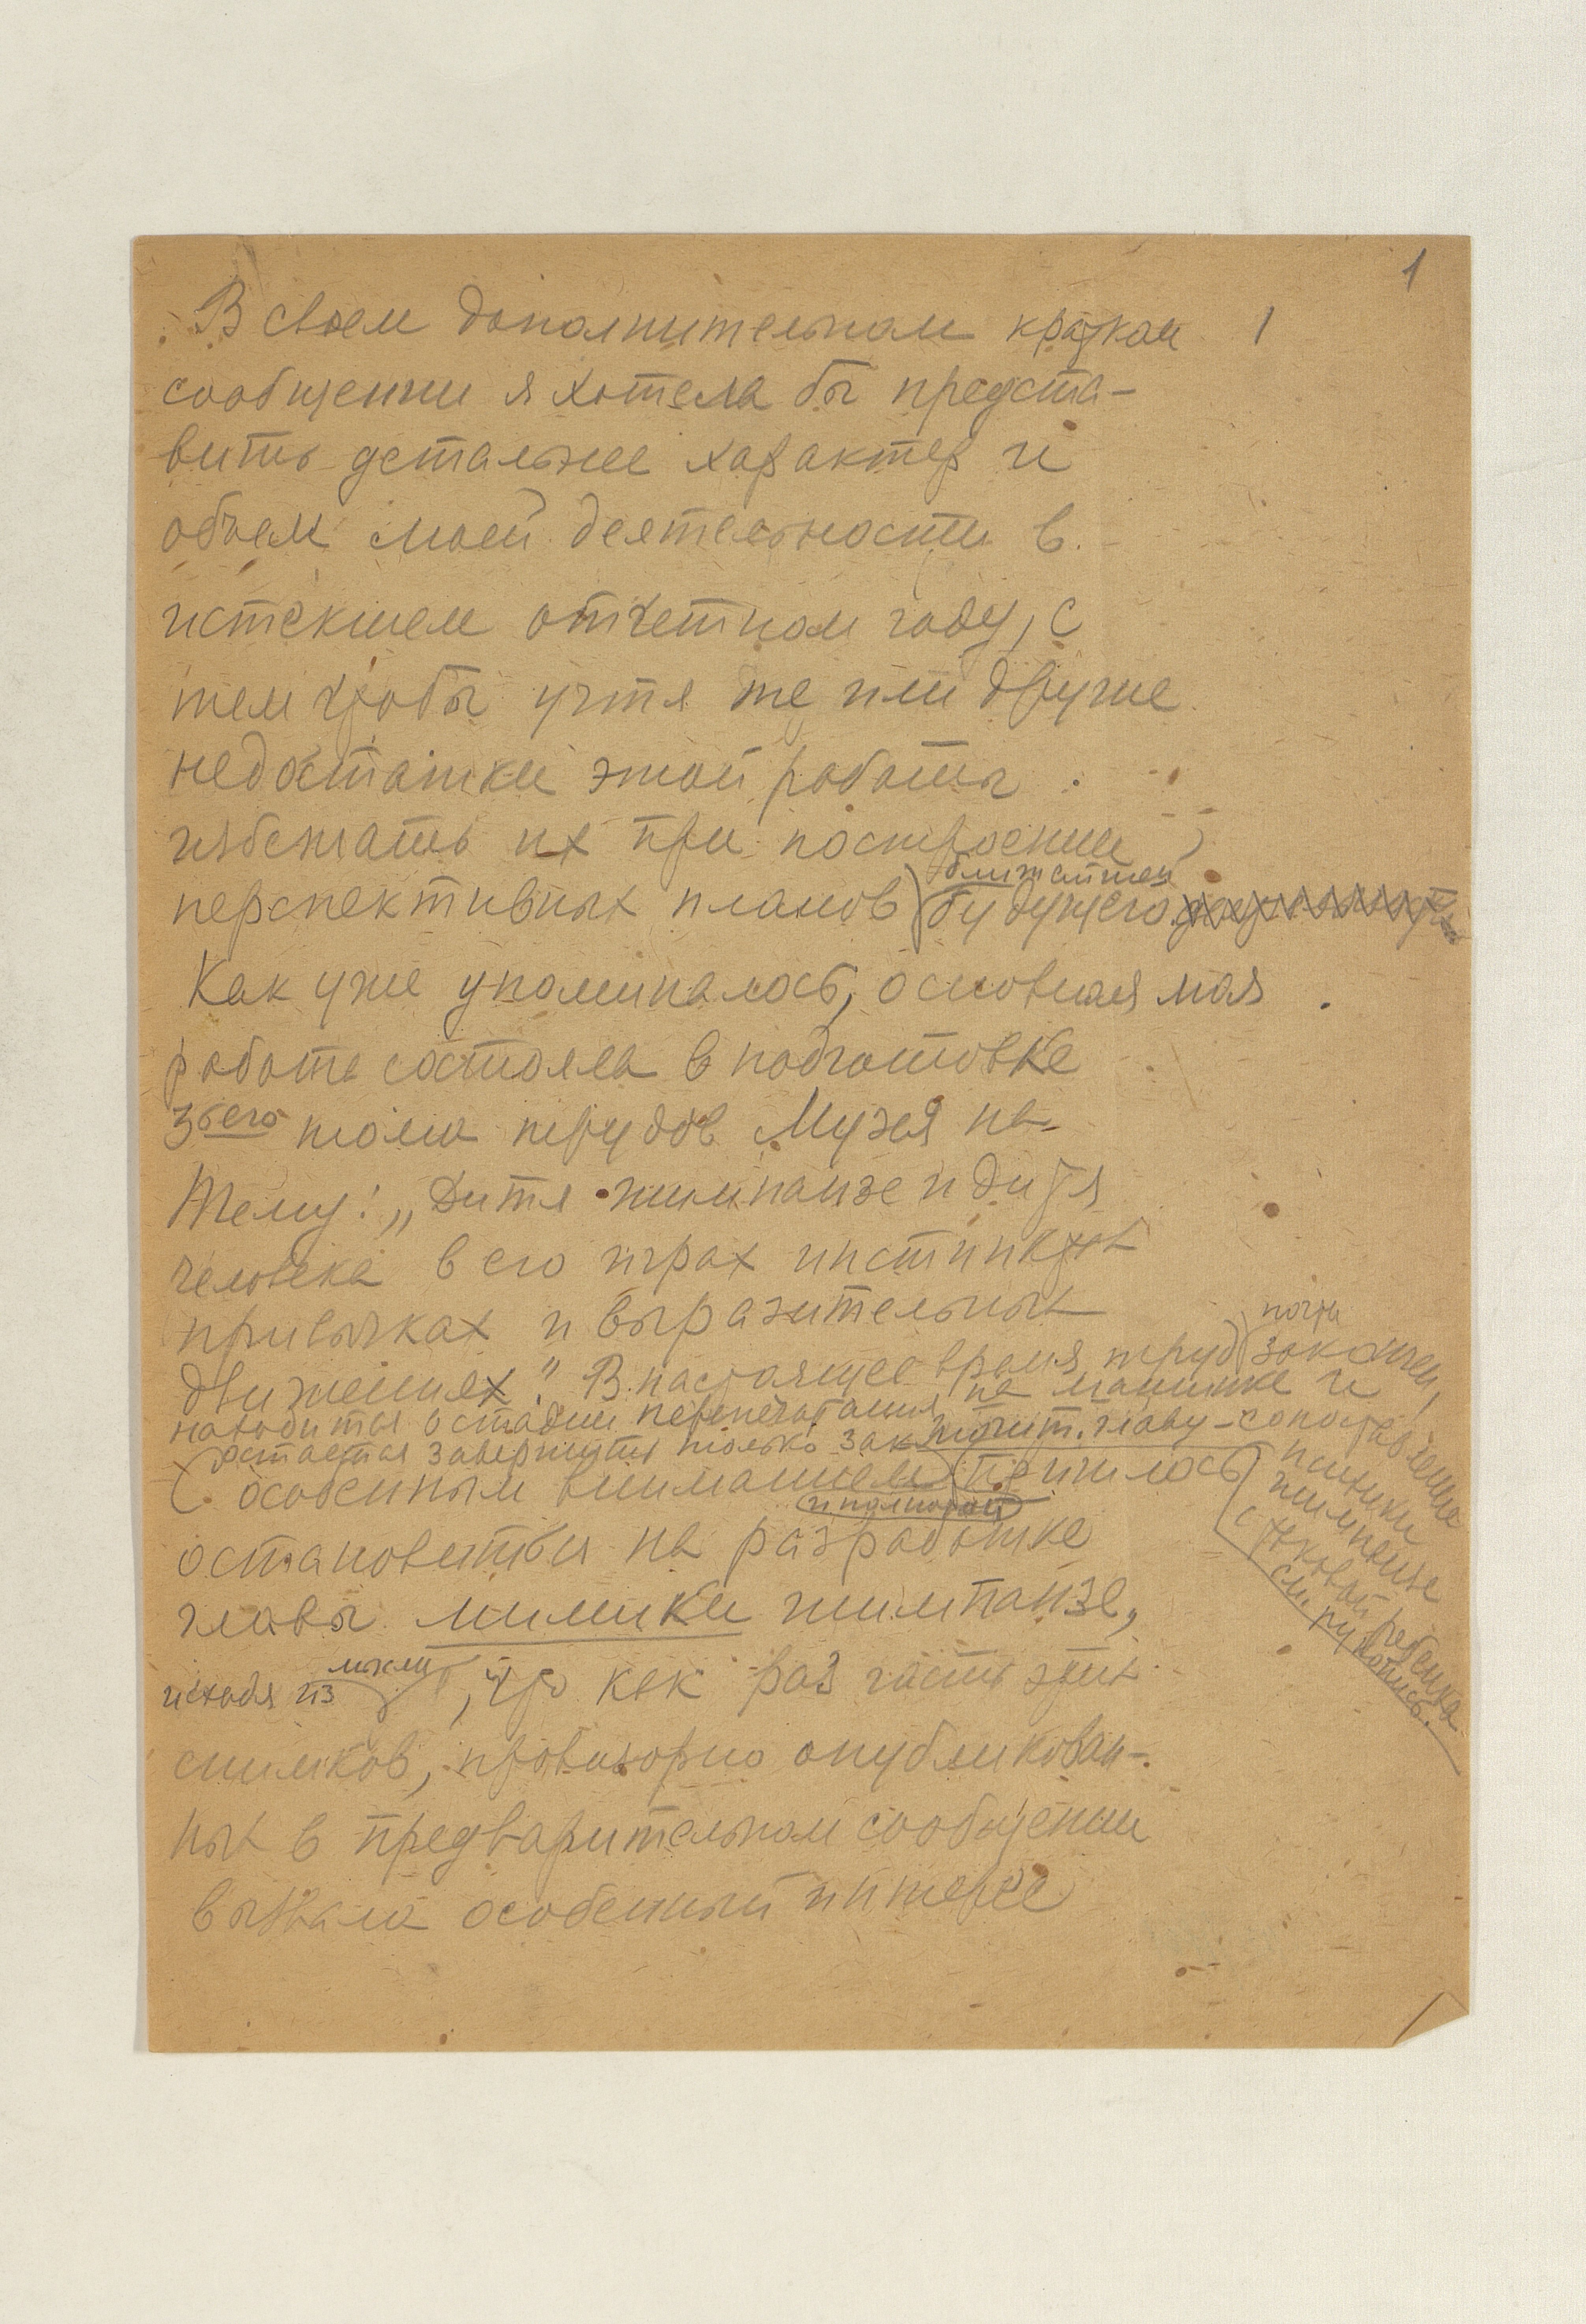 1
В своем дополнительном кратком 1
сообщении я хотела бы предста-
вить детальнее характер и
объем моей деятельности в
истекшем отчетном году, с
тем чтобы учтя те или другие
недостатки этой работы
избежать их при построении
ближайшего
перспективных планов будущего
Как уже упоминалось, основная моя
работа состояла в подготовке
3ьего тома трудов Музея на
тему: „Дитя шимпанзе и дитя
человека в его играх инстинктах
привычках и выразительных
почти
движениях". В настоящее время труд закончен,
находится в стадии перепечатания на машинке и
остается завершить только заключит. главу – сопоставление
психики
шимпанзе
с
ребенка
см. рукопись.
особенным вниманием пришлось
остановиться на разработке
главы мимики шимпанзе,
мысли
исходя из , что как раз часть этих
снимков, провизорно опубликован-
ных в предварительном сообщении
вызвала особенный интерес